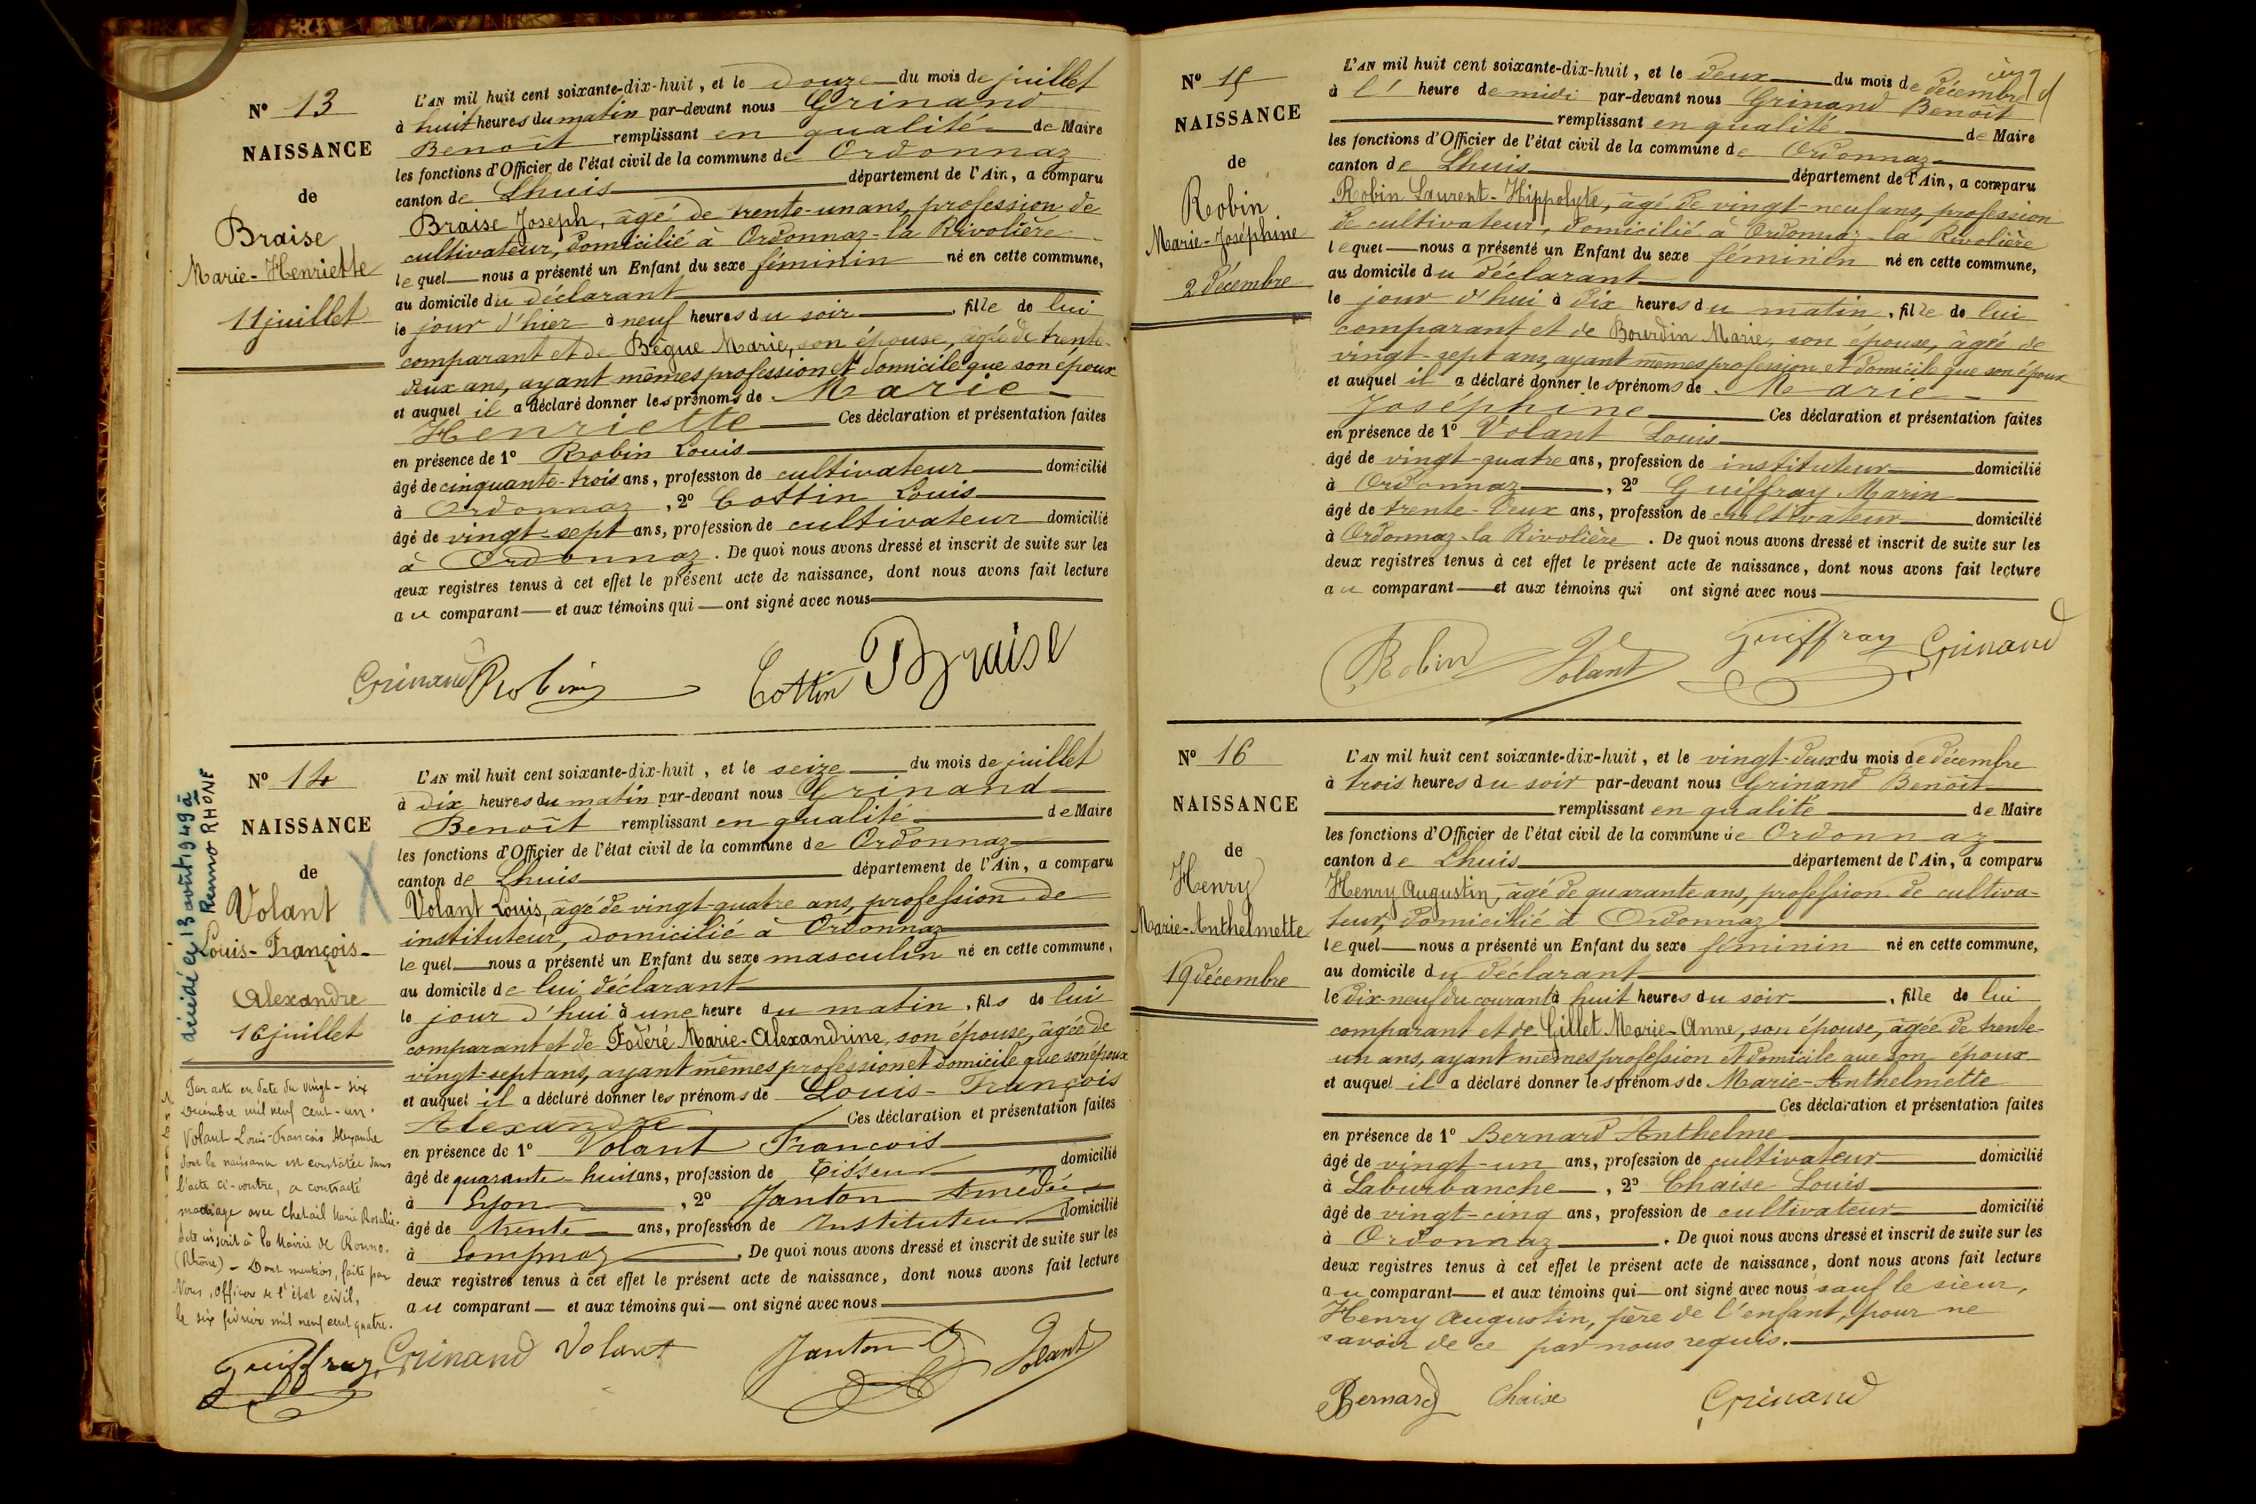 L'AN mil huit cent soixante-dix-huit, et le douze du mois de juillet
à huit heures du matin par-devant nous Grinand
Benoît remplissant en qualité de Maire
les fonctions d'Officier de l'état civil de la commune de Ordonnaz
canton de Lhuis département de l'Ain, a comparu
Braise Joseph, âgé de trente-un ans, profession de
cultivateur, domicilié à Ordonnaz-la Rivolière
lequel nous a présenté un Enfant du sexe féminin né en cette commune,
au domicile du déclarant
le jour d'hier à neuf heures du soir, fille de lui
comparant et de Bègue Marie, son épouse, âgée de trente-
deux ans, ayant mêmes profession et domicile que son époux
et auquel il a déclaré donner les prénoms de Marie-
Henriette Ces déclaration et présentation faites
en présence de 1º Robin Louis
âgé de cinquante-trois ans, profession de cultivateur domicilié
à Ordonnaz, 2º Cottin Louis
âgé de vingt-sept ans, profession de cultivateur domicilié
à Ordonnaz. De quoi nous avons dressé et inscrit de suite sur les
deux registres tenus à cet effet le présent acte de naissance, dont nous avons fait lecture
au comparant et aux témoins qui ont signé avec nous
Nº 13
NAISSANCE
de
Braise
Marie-Henriette
11 juillet
Grinand Robin Cottin Braise
Nº 14
NAISSANCE
de
Volant
Louis-François-
Alexandre
16 juillet
décédé le 13 août 1949 à
Ronno RHONE
L'AN mil huit cent soixante-dix-huit, et le seize du mois de juillet
à dix heures du matin par-devant nous Grinand
Benoît remplissant en qualité de Maire
les fonctions d'Officier de l'état civil de la commune de Ordonnaz
canton de Lhuis département de l'Ain, a comparu
Volant Louis, âgé de vingt-quatre ans, profession de
instituteur, domicilié à Ordonnaz
lequel nous a présenté un Enfant du sexe masculin né en cette commune,
au domicile de lui déclarant
le jour d'hui à une heure du matin, fils de lui
comparant et de Fodéré Marie-Alexandrine, son épouse, âgée de
vingt-sept ans, ayant mêmes profession et domicile que son époux
et auquel il a déclaré donner les prénoms de Louis-François
Alexandre Ces déclaration et présentation faites
en présence de 1º Volant François
âgé de quarante-huit ans, profession de Tisseur domicilié
à Lyon, 2º Janton Amédée
âgé de trente ans, profession de Instituteur domicilié
à Lompnaz. De quoi nous avons dressé et inscrit de suite sur les
deux registres tenus à cet effet le présent acte de naissance, dont nous avons fait lecture
au comparant et aux témoins qui ont signé avec nous
Par acte en date du vingt-six
Décembre mil neuf cent-un.
Volant Louis-François Alexandre
dont la naissance est constatée dans
l'acte ci-contre, a contracté
mariage avec Chetail Marie Rosalie.
Acte inscrit à la Mairie de Ronno.
(Rhône) - Dont mention, faite par
Nous, officier de l'état civil,
le six février mil neuf cent quatre.
Guiffray Grinand Volant Janton Volant
Nº 15
NAISSANCE
de
Robin
Marie-Joséphine
2 décembre
L'AN mil huit cent soixante-dix-huit, et le deux du mois de décembre
à l' heure de midi par-devant nous Grinand Benoît
remplissant en qualité de Maire
les fonctions d'Officier de l'état civil de la commune de Ordonnaz
canton de Lhuis département de l'Ain, a comparu
Robin Laurent-Hippolyte, âgé de vingt-neuf ans, profession
de cultivateur, domicilié à Ordonnaz-la Rivolière
lequel nous a présenté un Enfant du sexe féminin né en cette commune,
au domicile du déclarant
le jour d'hui à dix heures du matin, fille de lui
comparant et de Bourdin Marie, son épouse, âgée de
vingt-sept ans, ayant mêmes profession et domicile que son époux
et auquel il a déclaré donner les prénoms de Marie-
Joséphine Ces déclaration et présentation faites
en présence de 1º Volant Louis
âgé de vingt-quatre ans, profession de instituteur domicilié
à Ordonnaz, 2º Guiffray Marin
âgé de trente-deux ans, profession de cultivateur domicilié
à Ordonnaz-la Rivolière. De quoi nous avons dressé et inscrit de suite sur les
deux registres tenus à cet effet le présent acte de naissance, dont nous avons fait lecture
au comparant et aux témoins qui ont signé avec nous
Robin Volant Guiffray Grinand
Nº 16
NAISSANCE
de
Henry
Marie-Anthelmette
19 décembre
L'AN mil huit cent soixante-dix-huit, et le vingt-deux du mois de décembre
à trois heures du soir par-devant nous Grinand Benoît
remplissant en qualité de Maire
les fonctions d'Officier de l'état civil de la commune de Ordonnaz
canton de Lhuis département de l'Ain, a comparu
Henry Augustin, âgé de quarante ans, profession de cultiva-
teur, domicilié à Ordonnaz
lequel nous a présenté un Enfant du sexe féminin né en cette commune,
au domicile du déclarant
le dix-neuf du courant à huit heures du soir, fille de lui
comparant et de Gillet Marie-Anne, son épouse, âgée de trente-
un ans, ayant mêmes profession et domicile que son époux
et auquel il a déclaré donner les prénoms de Marie-Anthelmette
Ces déclaration et présentation faites
en présence de 1º Bernard Anthelme
âgé de vingt-un ans, profession de cultivateur domicilié
à Laburbanche, 2º Chaise Louis
âgé de vingt-cinq ans, profession de cultivateur domicilié
à Ordonnaz. De quoi nous avons dressé et inscrit de suite sur les
deux registres tenus à cet effet le présent acte de naissance, dont nous avons fait lecture
au comparant et aux témoins qui ont signé avec nous sauf le sieur,
Henry Augustin, père de l'enfant, pour ne
savoir de ce par nous requis.
Bernard Chaise Grinand